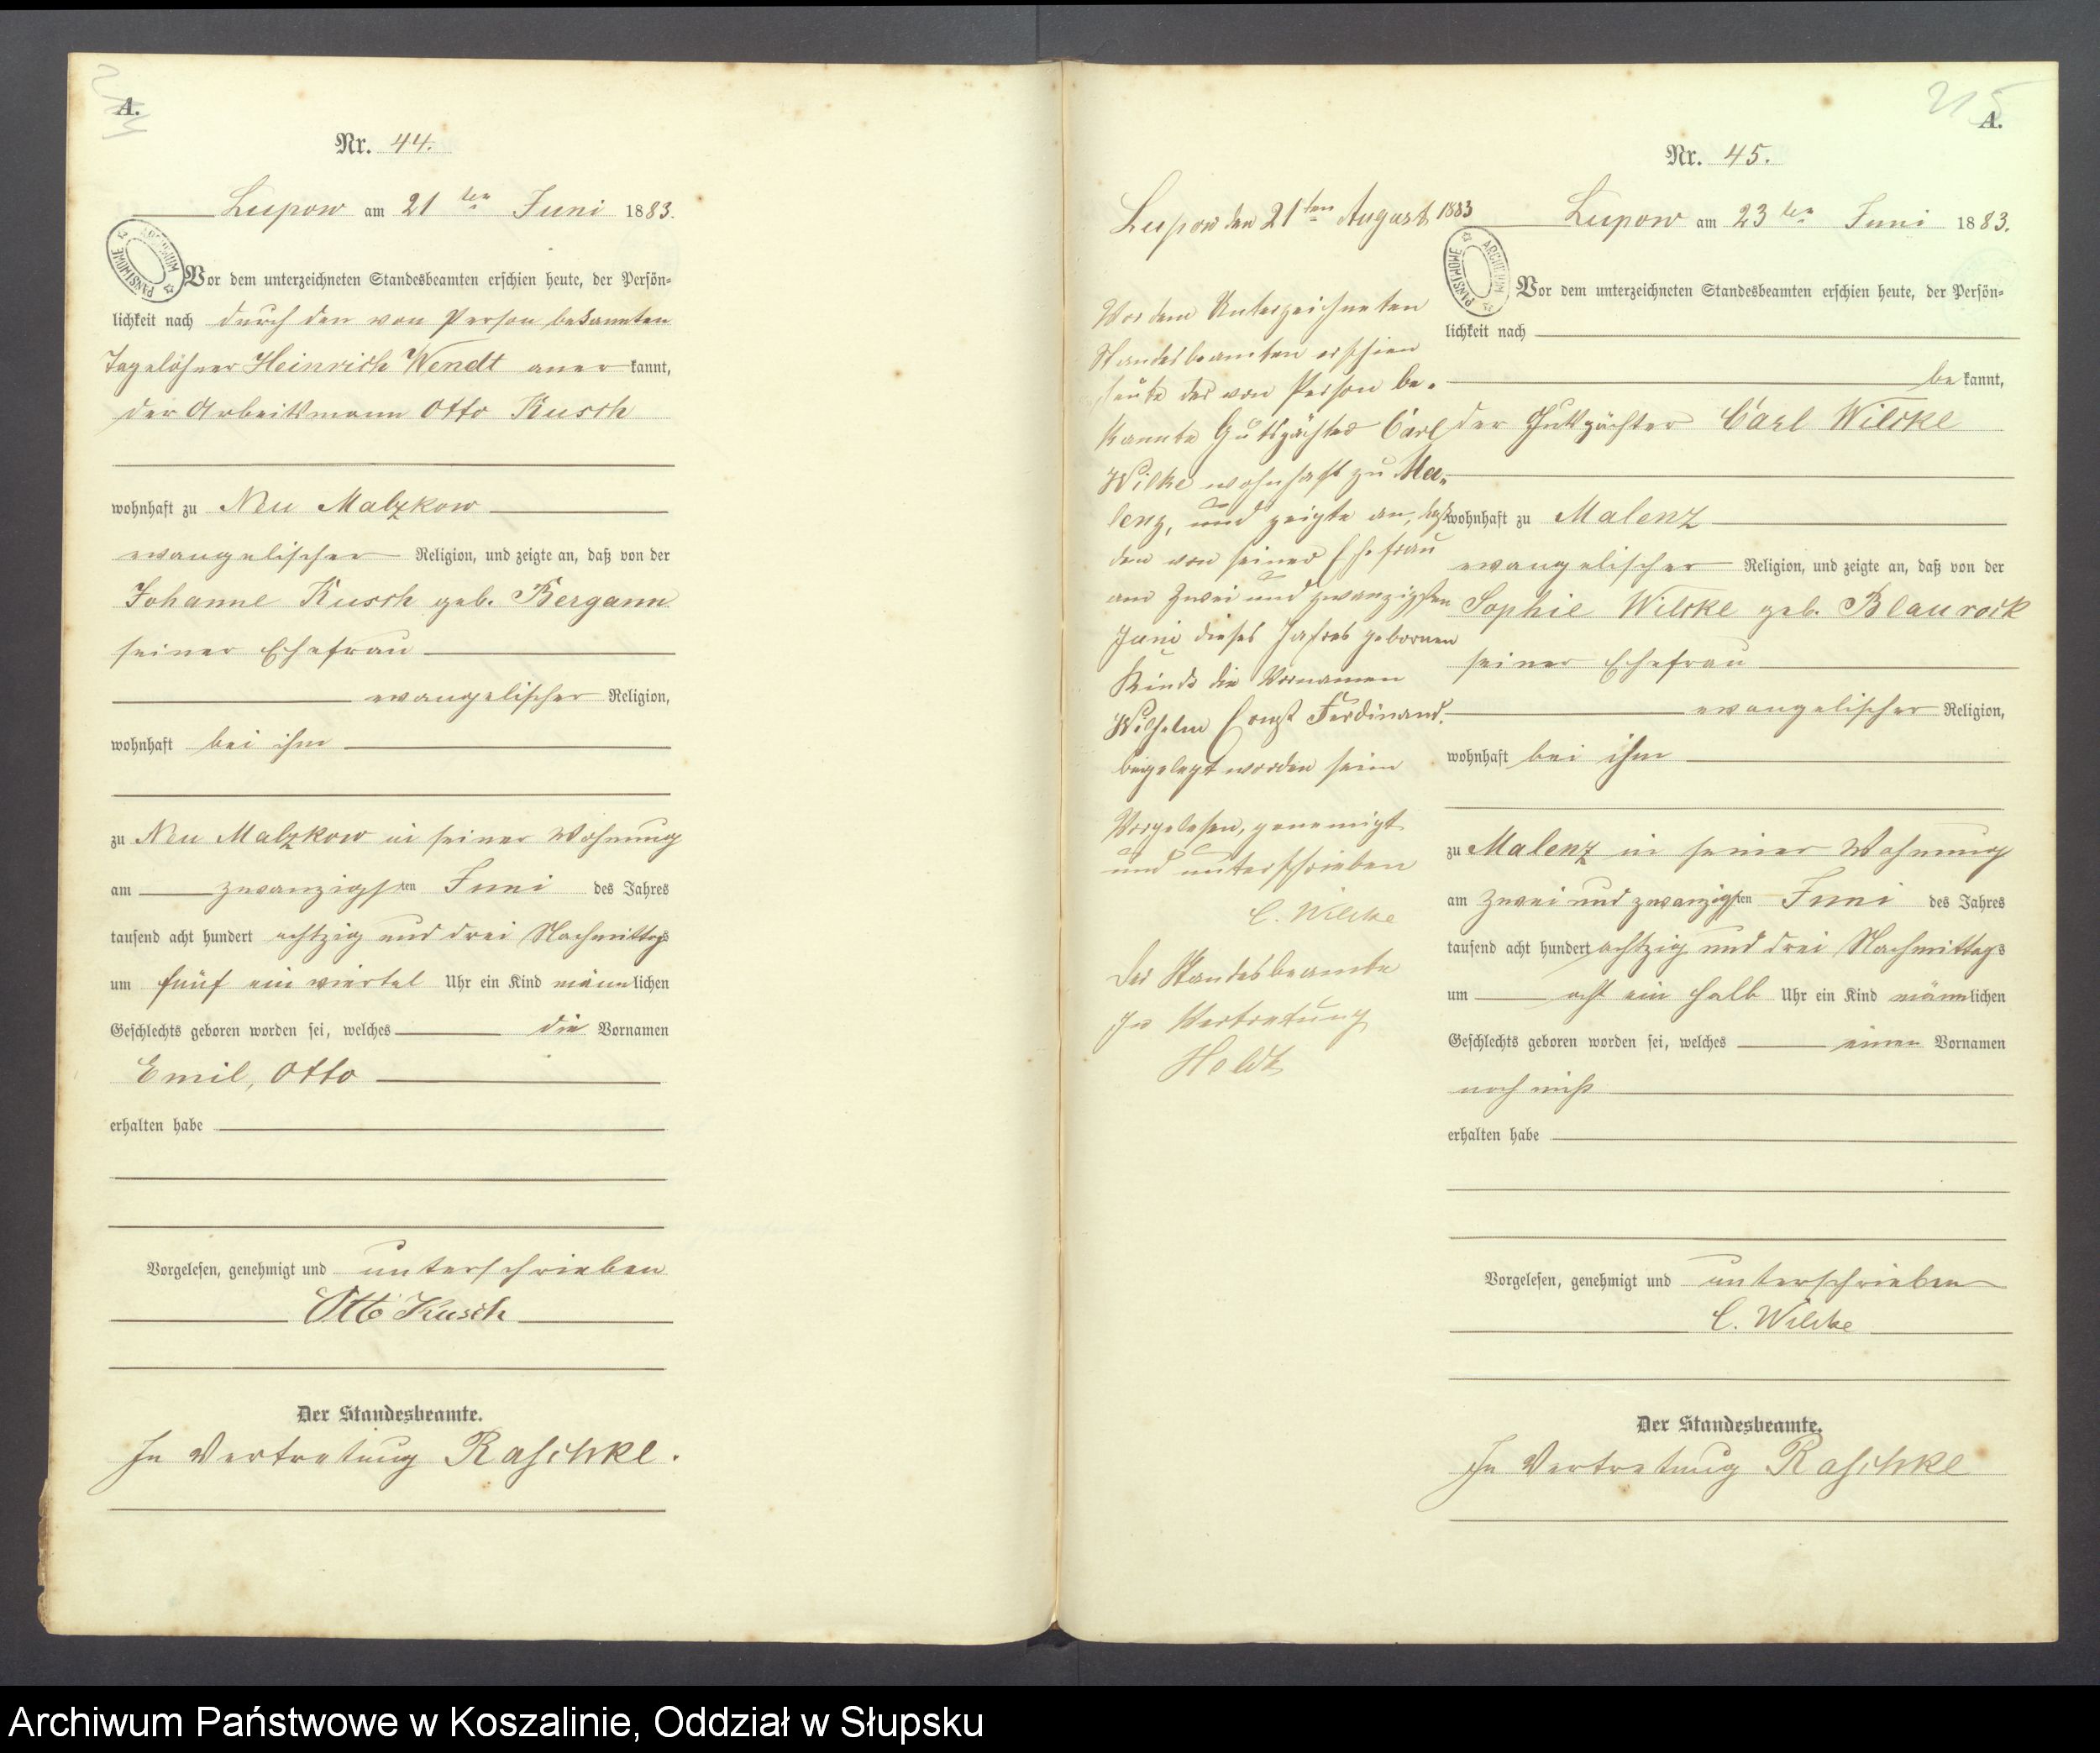 A.
Nr. 44.
Lupow am 21 ten Juni 1883.
Vor dem unterzeichneten Standesbeamten erschien heute, der Persön-
lichkeit nach durch den von Person bekannten
Tagelöhner Heinrich Wendt aner kannt,
der Arbeitsmann Otto Kusch
wohnhaft zu Neu Malzkow
evangelischer Religion, und zeigte an, daß von der
Johanne Kusch geb. Bergann
seiner Ehefrau
evangelischer Religion,
wohnhaft bei ihm
zu Neu Malzkow in seiner Wohnung
am zwanzigsten Juni des Jahres
tausend acht hundert achtzig und drei Nachmittags
um fünf ein viertel Uhr ein Kind männlichen
Geschlechts geboren worden sei, welches die Vornamen
Emil, Otto
erhalten habe
Vorgelesen, genehmigt und unterschrieben
Otto Kusch
Der Standesbeamte.
In Vertretung Raschke.
Lupow den 21ten August 1883
Vor dem Unterzeichneten
Standesbeamten erschien
heute der von Person be-
kannte Gutspächter Carl
Wilke wohnhaft zu Ma-
lenz, und zeigte an, daß
den von seiner Ehefrau
am zwei und zwanzigsten
Juni dieses Jahres gebornen
Kinde die Vornamen
Wilhelm Ernst Ferdinand.
beigelegt worden seien
Vorgelesen, genemigt
und unterschrieben
C. Wilcke
Der Standesbeamte
In Vertretung
Holdt
215
A.
Nr. 45.
Lupow am 23 ten Juni 1883.
Vor dem unterzeichneten Standesbeamten erschien heute, der Persön-
lichkeit nach
be kannt,
der Gutspächter Carl Wilcke
wohnhaft zu Malenz
evangelischer Religion, und zeigte an, daß von der
Sophie Wilcke geb. Blaurock
seiner Ehefrau
evangelischer Religion,
wohnhaft bei ihm
zu Malenz in seiner Wohnung
am zwei und zwanzigsten Juni des Jahres
tausend acht hundert achtzig und drei Nachmittags
um acht ein halb Uhr ein Kind männlichen
Geschlechts geboren worden sei, welches einen Vornamen
noch nicht
erhalten habe
Vorgelesen, genehmigt und unterschrieben
C. Wilcke
Der Standesbeamte.
In Vertretung Raschke
ARCHIWUM PAŃSTWOWE
ARCHIWUM PAŃSTWOWE
Archiwum Państwowe w Koszalinie, Oddział w Słupsku